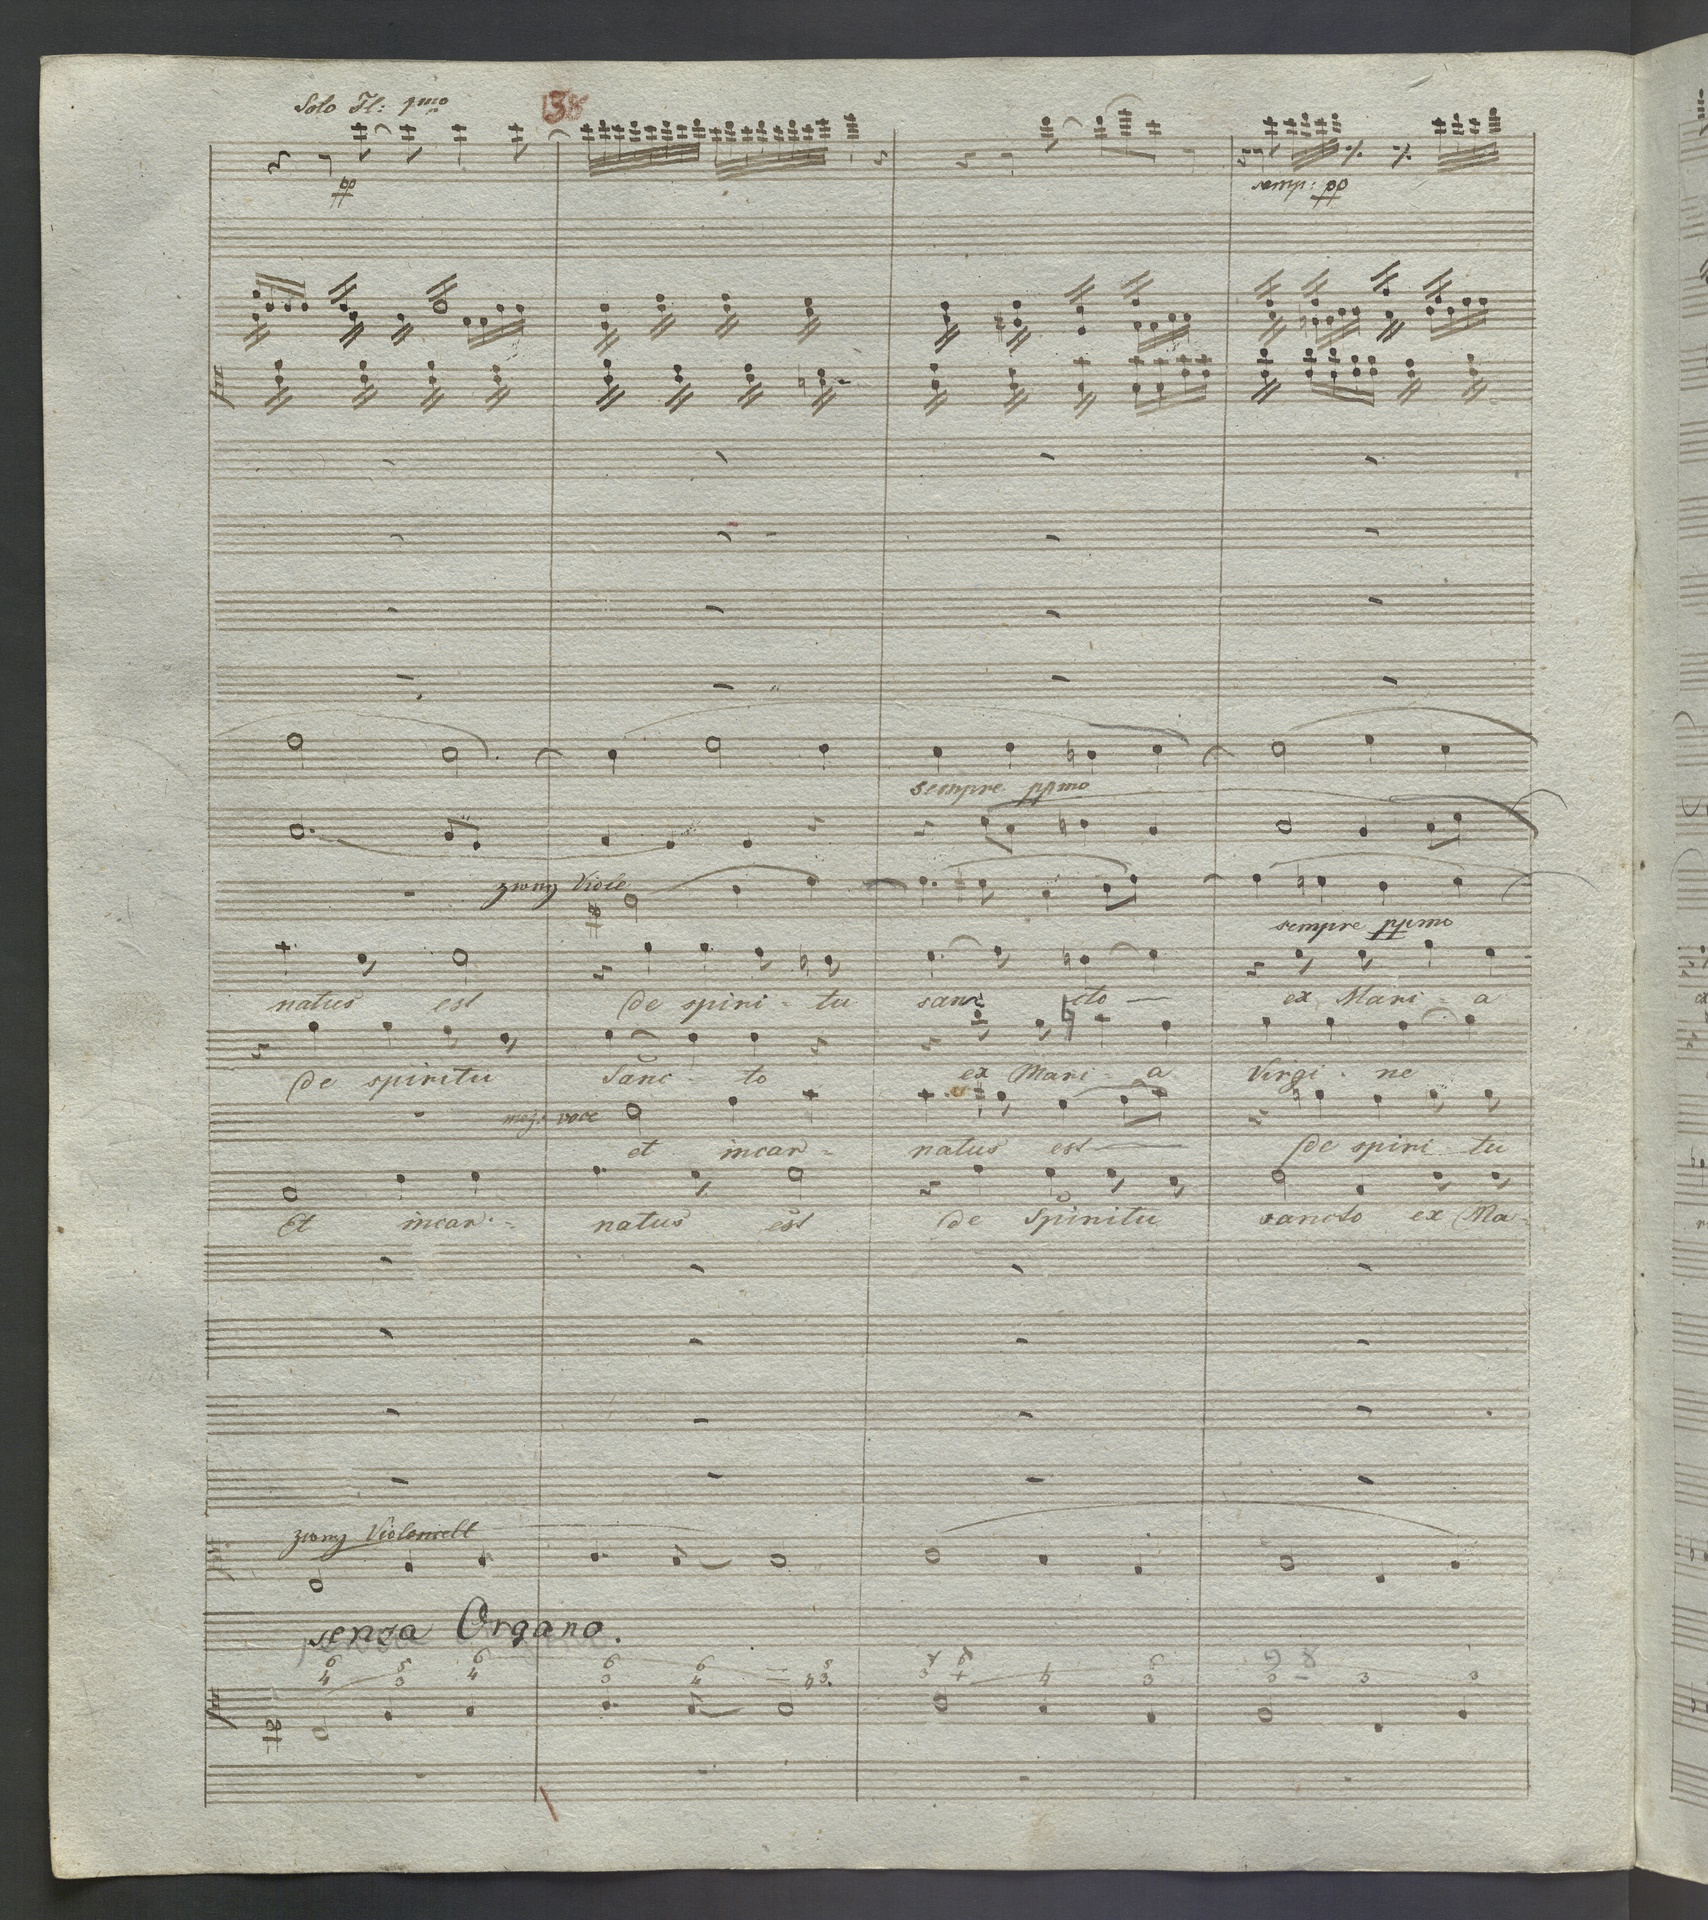 Solo Fl: 1mo
13
pp
semp: pp
sempre ppmo
zwey Viole
sempre ppmo
natus est de spiri - tu sanc cto — ex Mari - a
de spiritu Sanc - to ex Mari - a Virgi - ne
mez: voce
et incar - natus est — de spiri tu
Et incar - natus est de Spiritu sancto ex Ma -
zwey Violoncell
senza Organo.